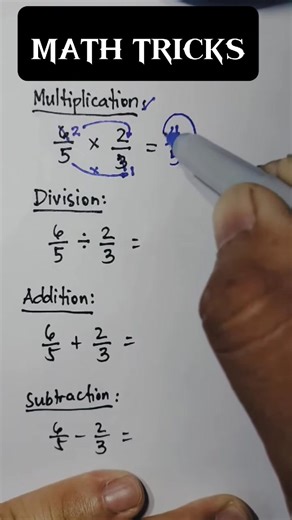 MATH TRICKS
Multiplication:
6/5 2 × 2/3 1 = 4/5
Division:
6/5 ÷ 2/3 =
Addition:
6/5 + 2/3 =
Subtraction:
6/5 - 2/3 =